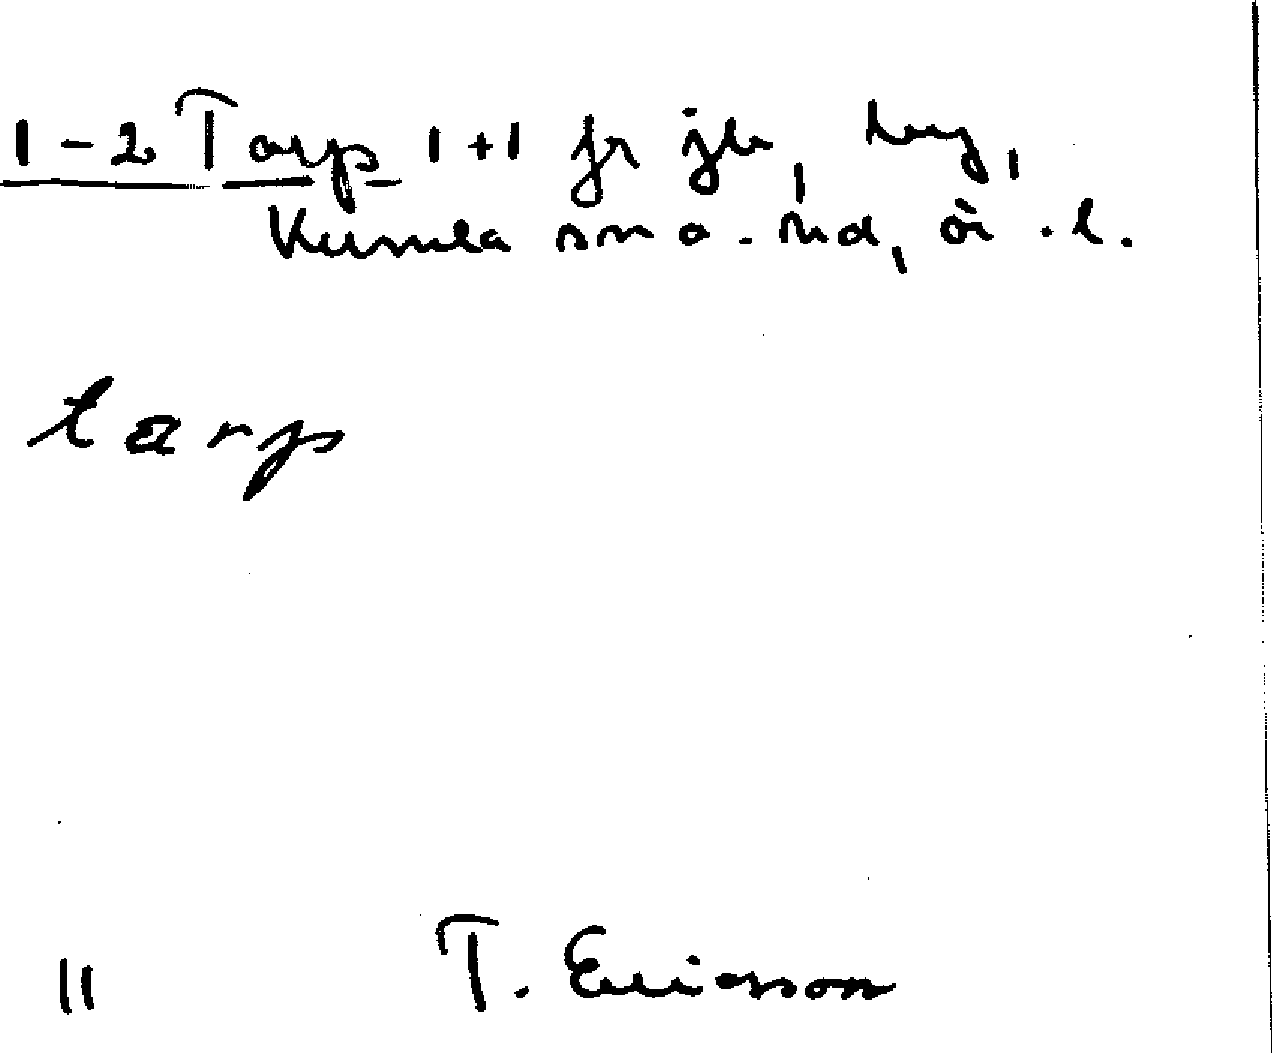 1-2 Tarp 1+1 fr jb,
Kumla sn o. hd, ör. l.
tarp
11 T. Ericsson